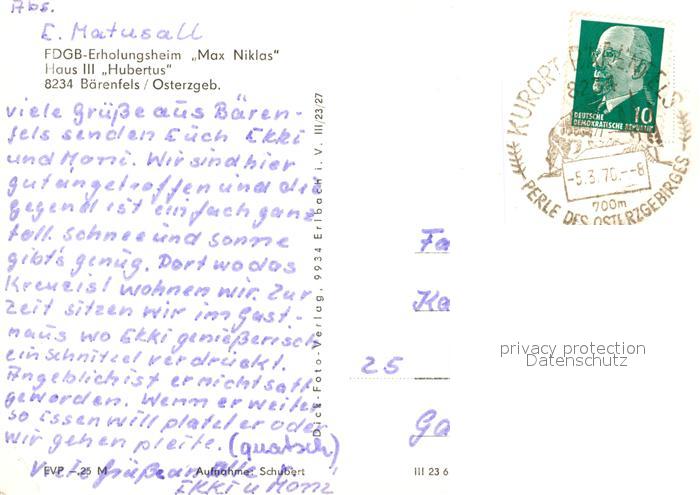 Abs.
E. Matusall
FDGB-Erholungsheim „Max Niklas"
Haus III „Hubertus"
8234 Bärenfels / Osterzgeb.
viele Grüße aus Bären-
fels senden Euch Ekki
und Moni. Wir sind hier
gut angetroffen und die
Gegend ist einfach ganz
toll. Schnee und Sonne
gibt's genug. Dort wo das
Kreuz ist wohnen wir. Zur
Zeit sitzen wir im Gast-
haus wo Ekki genießerisch
ein Schnitzel verdrückt.
Angeblich ist er nicht satt
geworden. Wenn er weiter
so essen will platzt er oder
wir gehen pleite. (quatsch)
Viele Grüße
Ekki u Moni
EVP –,25 M
Aufnahme: Schubert
III 23 6
Dick-Foto-Verlag, 9934 Erlbach i. V. III/23/27
DEUTSCHE
DEMOKRATISCHE REPUBLIK
10
KURORT
-5.3.70.--8
700m
PERLE DES OSTERZGEBIRGES
Fa
Ka
25
Ga
privacy protection
Datenschutz